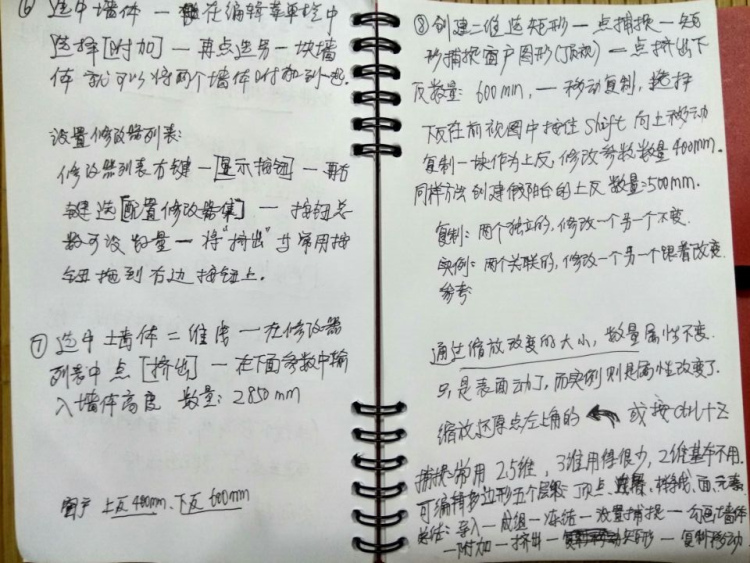 ⑥ 选中墙体 — 在编辑菜单栏中
选择[附加] — 再点选另一块墙
体 就可以将两个墙体附加到一起.
设置修改器列表:
修改器列表右键 — [显示按钮] — 再右
键选[配置修改器集] — 按钮总
数可设数量 — 将"挤出"等常用按
钮拖到右边按钮上.
⑦ 选中墙体二维线 — 在修改器
列表中点[挤出] — 在下面参数中输
入墙体高度 数量: 2850mm
窗户 上反400mm、下反600mm
⑧ 创建二维选矩形 — 点捕捉 — 矩
形捕捉窗户图形(顶视) — 点挤出下
反数量: 600mm, — 移动复制, 选择
下反在前视图中按住Shift向上移动
复制一块作为上反, 修改参数数量400mm.
同样方法创建阳台的上反数量=500mm.
复制: 两个独立的, 修改一个另一个不变.
实例: 两个关联的, 修改一个另一个跟着改变.
参考
通过缩放改变的大小, 数量属性不变.
只是表面动了, 而实例则是属性改变了.
缩放还原点左上角的 或按ctrl+Z
捕捉常用 2.5维, 3维用得很少, 2维基本不用.
可编辑多边形五个层级: 顶点、边、样条线、面、元素
总结: 导入 — 成组 — 冻结 — 设置捕捉 — 勾画墙体
— 附加 — 挤出 — 矩形 — 复制移动.